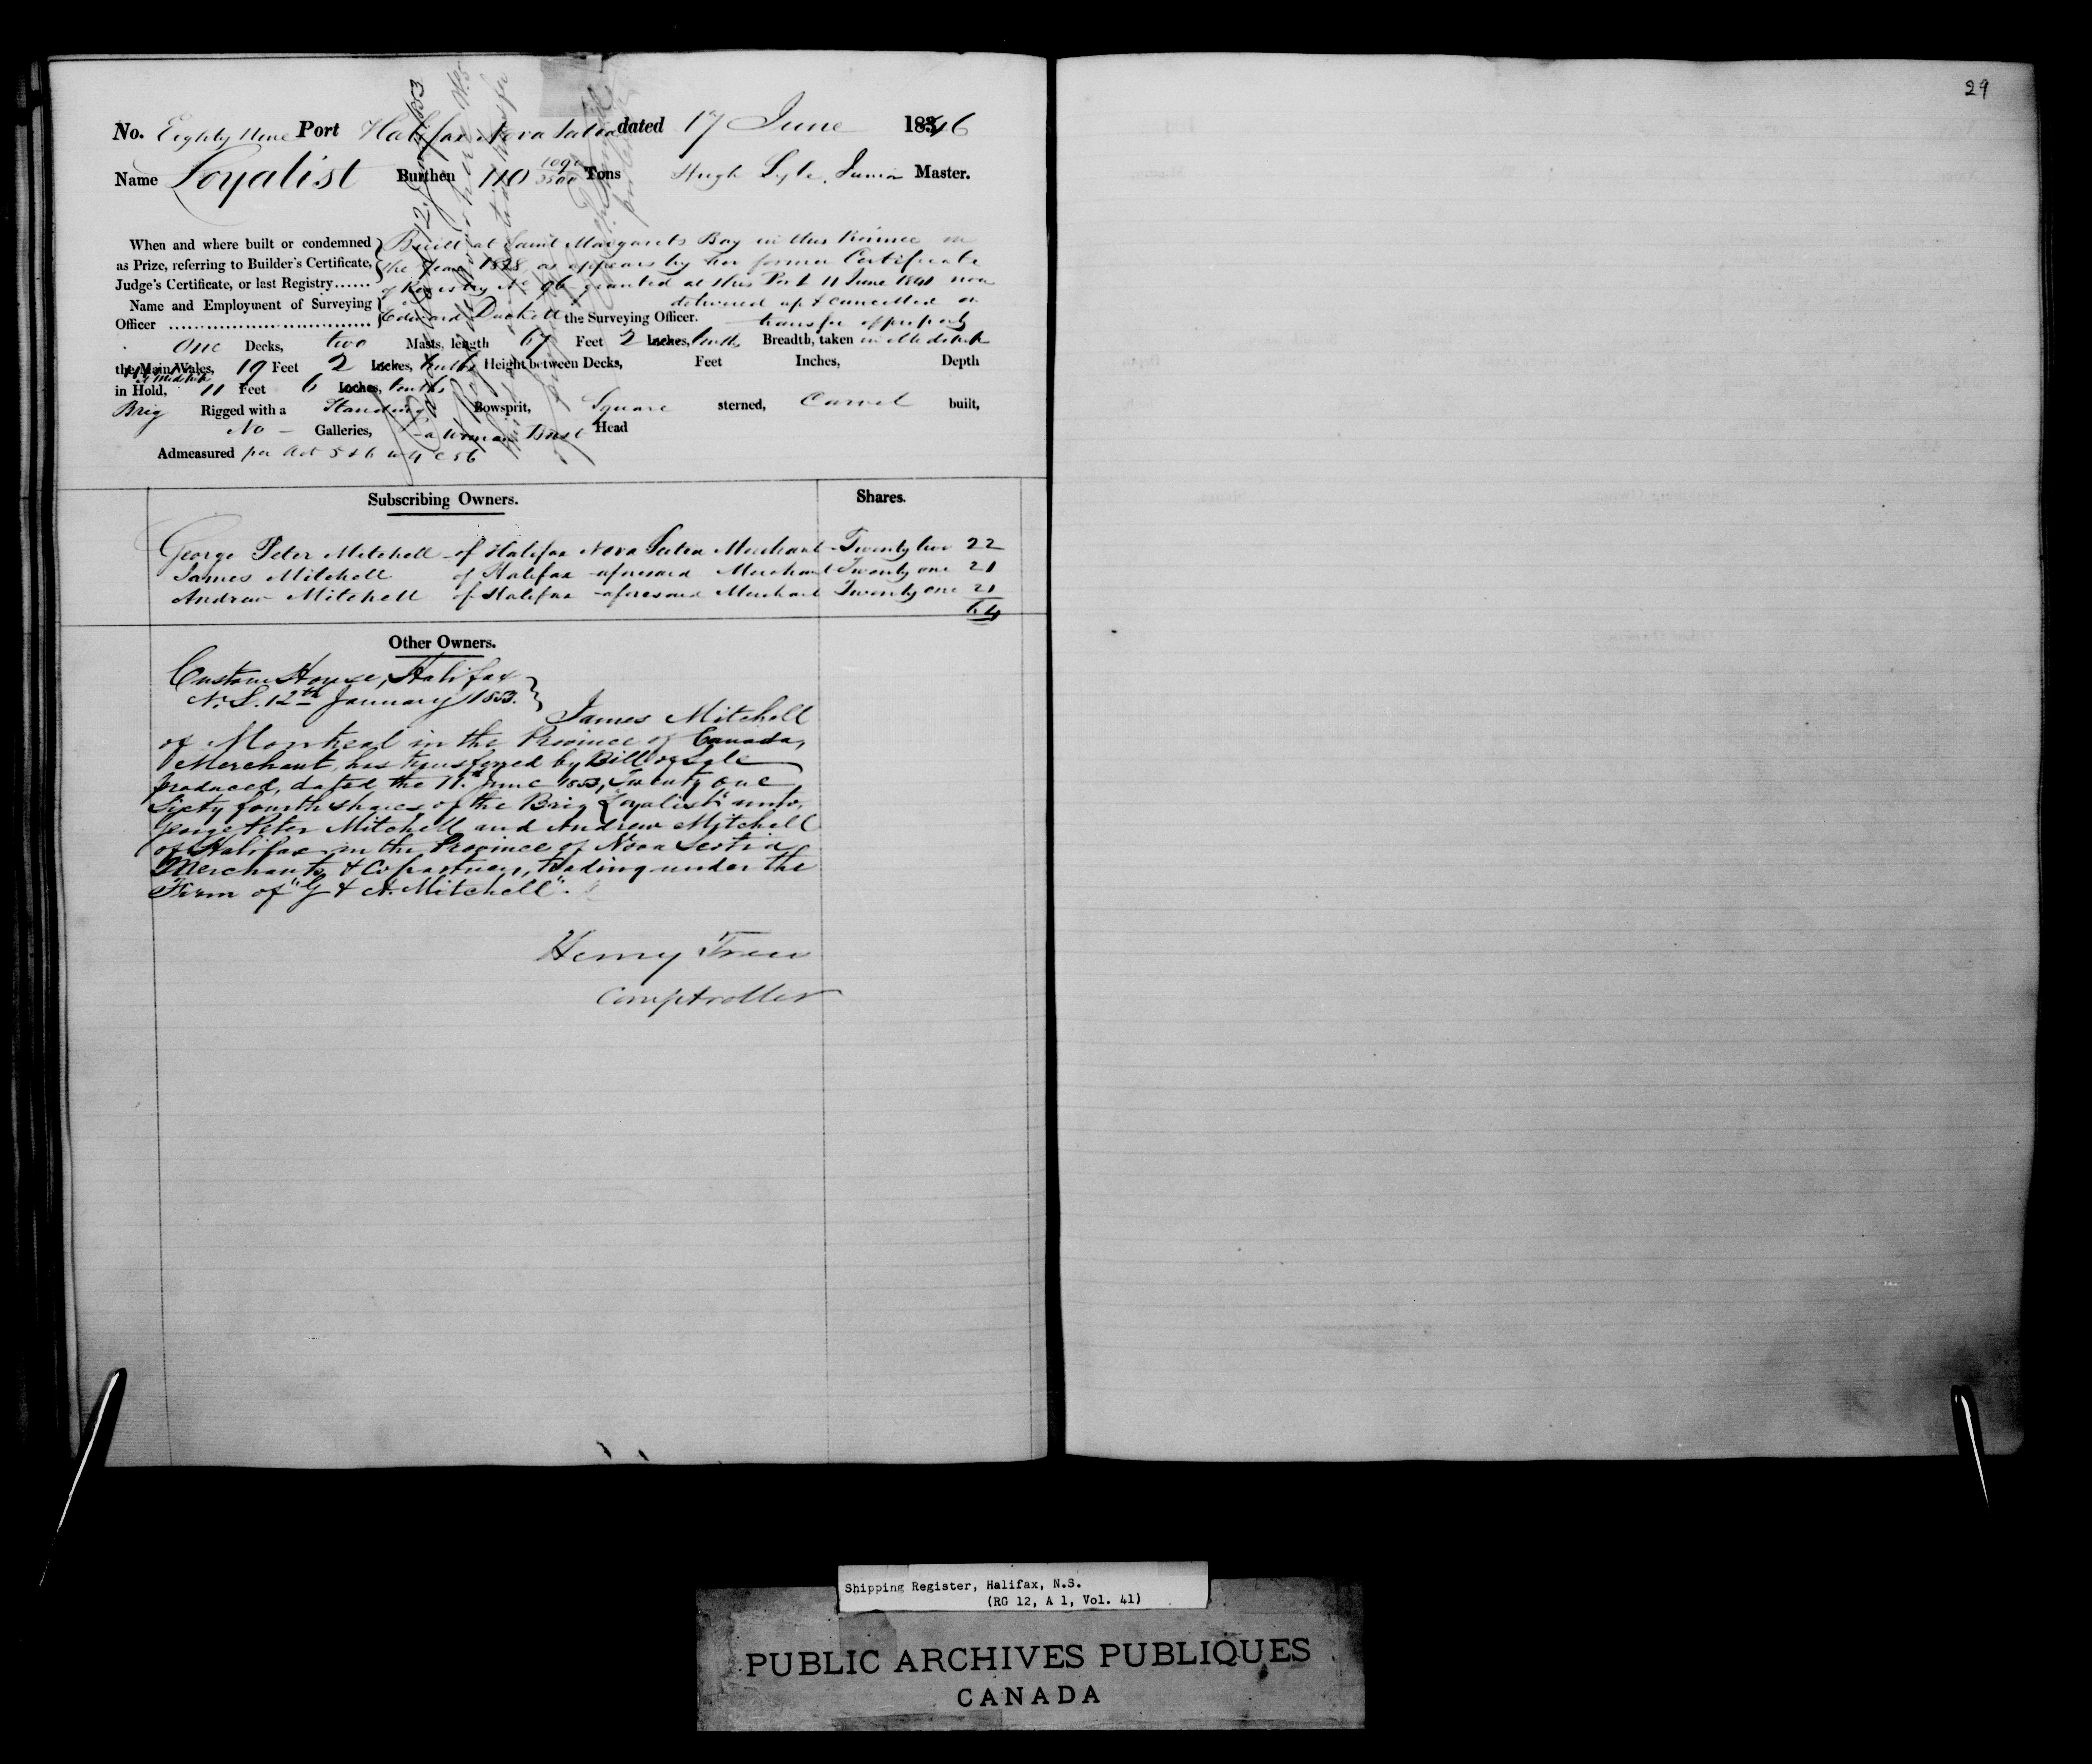 29
No. Eighty Nine Port Halifax Nova Scotia dated 17 June 1846
Name Loyalist Burthen 110 1090/3500 Tons Hugh Lyle, Junior Master.
When and where built or condemned Built at Saint Margarets Bay in this Province in
as Prize, referring to Builder's Certificate, the Year 1828, as appears by her former Certificate
Judge's Certificate, or last Registry...... of Registry No 96 granted at this Port 11 June 1841 now
Name and Employment of Surveying delivered up & cancelled on
Officer Edward Duckett the Surveying Officer. transfer of property
One Decks, two Masts, length 67 Feet 2 Inches, tenths Breadth, taken in Midships
the Main Wales, 19 Feet 2 Inches, tenths Height between Decks, Feet Inches, Depth
in Hold, at Midships 11 Feet 6 Inches, tenths
Brig Rigged with a Standing Bowsprit, Square sterned, Carvel built,
No — Galleries, a Woman Bust Head
Admeasured per Act 5 & 6 W 4 C 56
Subscribing Owners. Shares.
George Peter Mitchell of Halifax Nova Scotia Merchant Twenty two 22
James Mitchell of Halifax aforesaid Merchant Twenty one 21
Andrew Mitchell of Halifax aforesaid Merchant Twenty one 21
64
Other Owners.
Custom House, Halifax
N.S. 12th January 1853.
James Mitchell
of Montreal in the Province of Canada,
Merchant, has transferred by Bill of Sale
produced, dated the 11th June 1853, Twenty one
Sixty fourth shares of the Brig "Loyalist" unto,
George Peter Mitchell and Andrew Mitchell
of Halifax in the Province of Nova Scotia
Merchants & Copartners, trading under the
Firm of "G & A. Mitchell".
Henry Trew
Comptroller
Shipping Register, Halifax, N.S.
(RG 12, A 1, Vol. 41)
PUBLIC ARCHIVES PUBLIQUES
CANADA